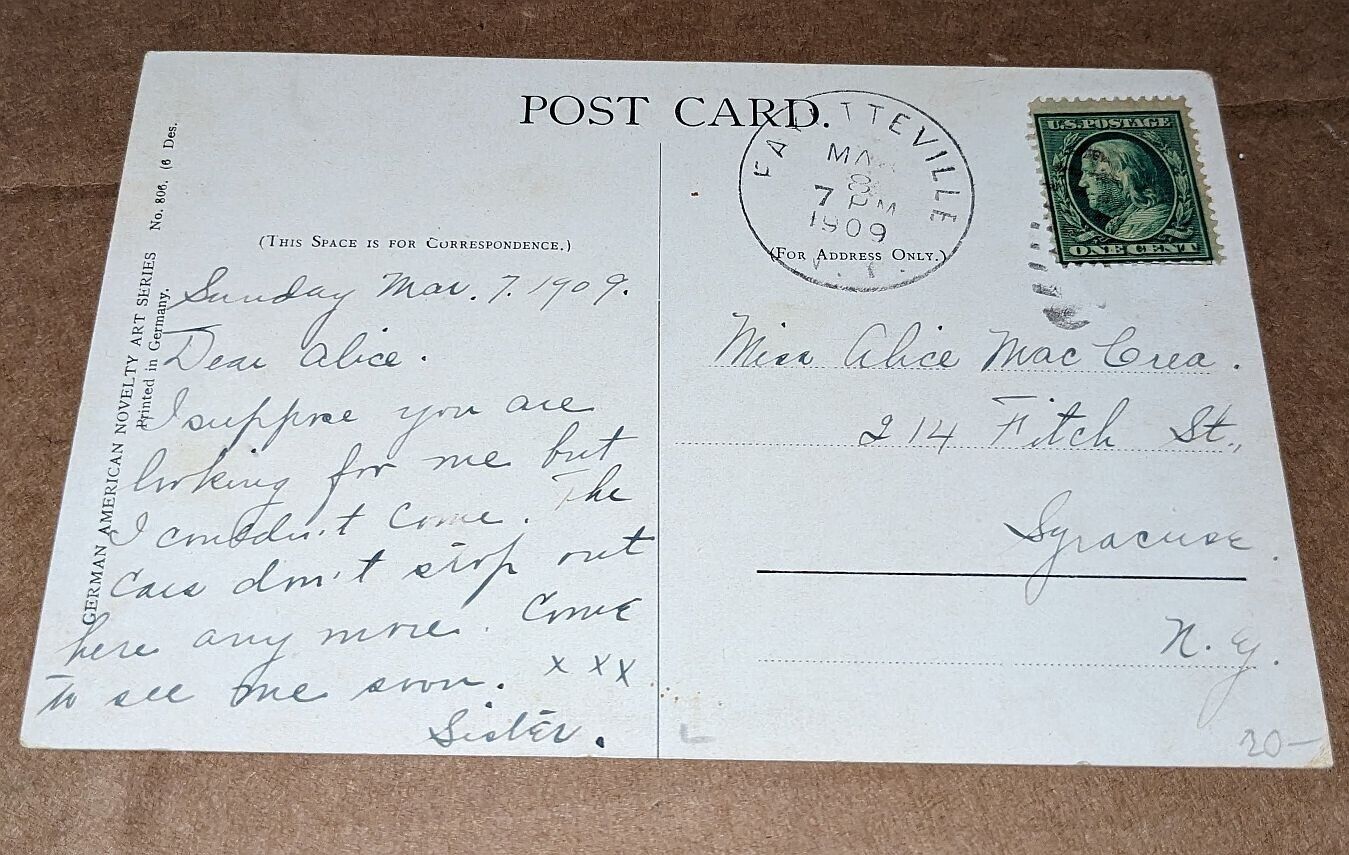 POST CARD.
FAYETTEVILLE
MAR
8
7 PM
1909
N.Y.
U.S. POSTAGE
ONE CENT
(THIS SPACE IS FOR CORRESPONDENCE.)
(FOR ADDRESS ONLY.)
GERMAN AMERICAN NOVELTY ART SERIES No. 806. (6 Des.
Printed in Germany.
Sunday Mar. 7. 1909.
Dear Alice.
I suppose you are
looking for me but
I couldn't come. The
cars don't stop out
here any more. Come
to see me soon. x x x
Sister.
Miss Alice Mac Crea.
214 Fitch St.,
Syracuse.
N. Y.
20-